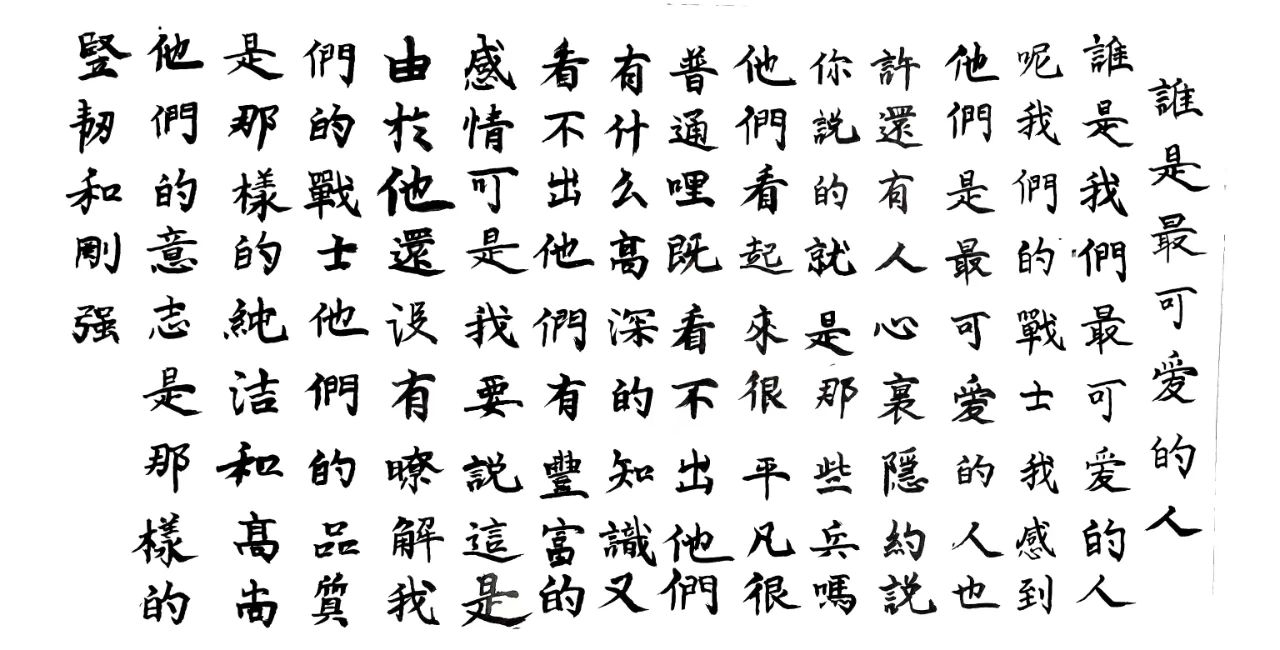 誰是最可爱的人
誰是我們最可爱的人
呢我們的戰士我感到
他們是最可愛的人也
許還有人心裏隱約説
你説的就是那些兵嗎
他們看起來很平凡很
普通哩既看不出他們
有什么高深的知識又
看不出他們有豐富的
感情可是我要説這是
由於他還没有瞭解我
們的戰士他們的品質
是那樣的純洁和高尚
他們的意志是那樣的
竖韧和剛强